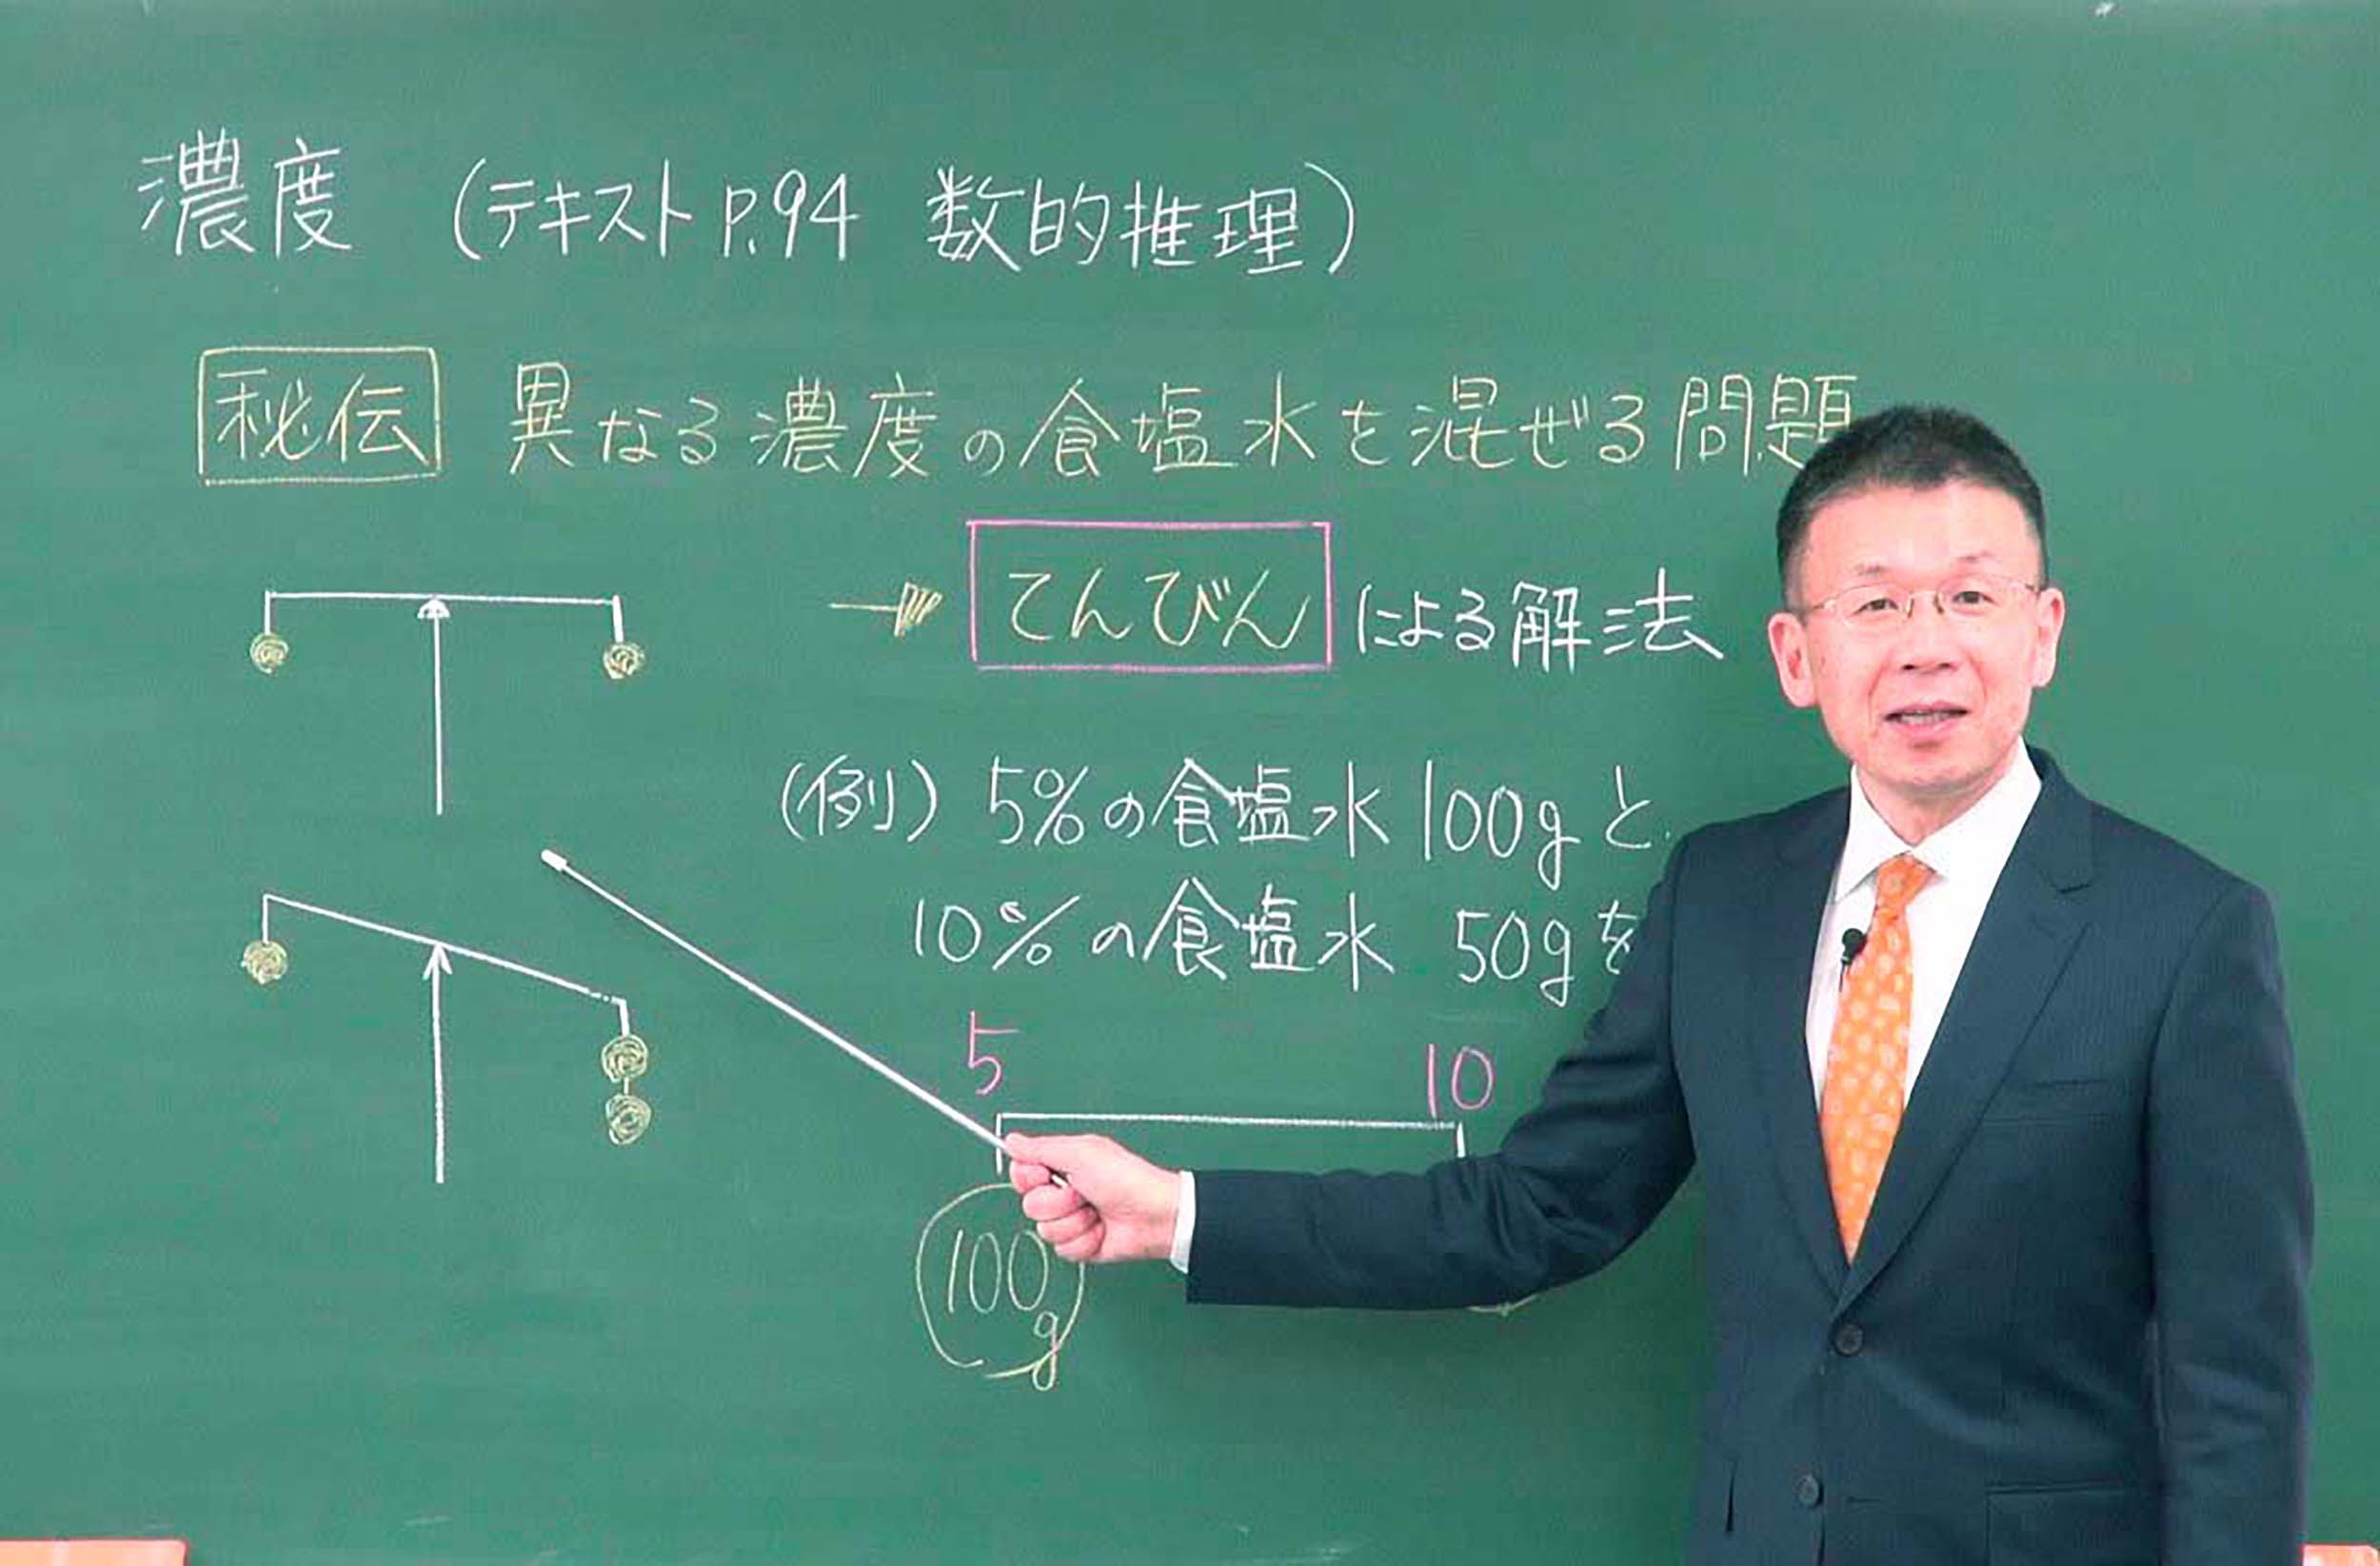 濃度 (テキスト P.94 数的推理)
秘伝 異なる濃度の食塩水を混ぜる問題
てんびん による解法
(例) 5%の食塩水 100g と
10%の食塩水 50g を
5 10
100g